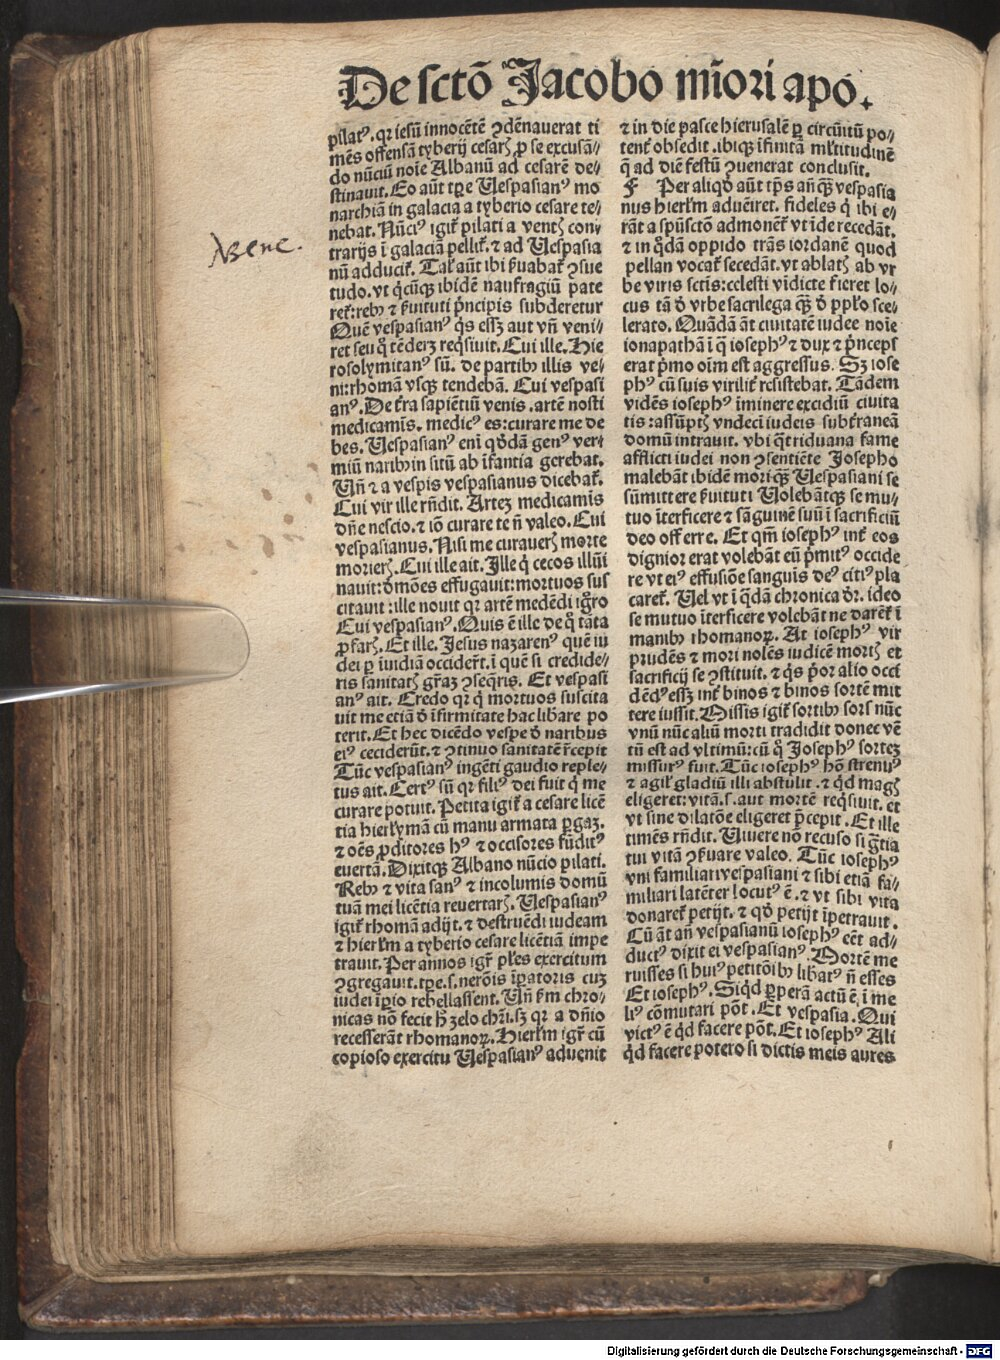 De sctō Jacobo mīori apo.
pilatꝰ. qꝛ iesū innocētē ꝯdēnauerat ti
mēs offensā tyberij cesarꝭ ꝓ se excusā⸗
do nūciū noīe Albanū ad cesarē de⸗
stinauit. Eo aūt tꝑe Uespasianꝰ mo
narchiā in galacia a tyberio cesare te⸗
nebat. Nūciꝰ igit̄ pilati a ventꝭ con⸗
trarijs ī galaciā pellit̄. ⁊ ad Uespasia
nū adducit̄. Tal̄ aūt ibi s̄uabat̄ ꝯsue
tudo. vt q̄cūqꝫ ibidē naufragiū pate
ret̄: rebꝰ ⁊ s̄uituti p̄ncipis subderetur
Quē vespasianꝰ q̄s essꝫ aut vn̄ veni⸗
ret seu q̄ tēderꝫ reqsiuit. Cui ille. Hie
rosolymitanꝰ sū. de partibꝰ illis ve⸗
ni: rhomā vsqꝫ tendebā. Cui vespasi
anꝰ. De t̄ra sapiētiū venis. artē nosti
medicamīs. medicꝰ es: curare me de
bes. Uespasianꝰ eni qōdā genꝰ ver⸗
miū naribꝰ in sitū ab īfantia gerebat.
Un̄ ⁊ a vespis vespasianus dicebat̄.
Cui vir ille rn̄dit. Artez medicamīs
dn̄e nescio. ⁊ iō curare te n̄ valeo. Cui
vespasianus. Nisi me curauerꝭ morte
morierꝭ. Cui ille ait. Ille q̄ cecos illūi
nauit: dmōes effugauit: mortuos sus
citauit: ille nouit qꝛ artē medēdi igr̄o
Cui vespasianꝰ. Quis ē ille de q̄ tāta
ꝓfarꝭ. Et ille. Jesus nazarenꝰ quē iu
dei ꝑ īuidiā occider̄t. ī quē si credide⸗
ris sanitatꝭ gr̄az ꝯseqris. Et vespasi
anꝰ ait. Credo qꝛ q̄ mortuos suscita
uit me etiā d īfirmitate hac libare po
terit. Et hec dicēdo vespe d naribus
eiꝰ ceciderūt. ⁊ ꝯtinuo sanitatē r̄cepit
Tūc vespasianꝰ ingēti gaudio reple⸗
tus ait. Certꝰ sū qꝛ filiꝰ dei fuit q̄ me
curare potuit. Petita igit̄ a cesare licē
tia hierlymā cū manu armata ꝑgaz.
⁊ oēs ꝓditores hꝰ ⁊ occisores fūditꝰ
euertā. Dixitqꝫ Albano nūcio pilati.
Rebꝰ ⁊ vita sanꝰ ⁊ incolumis domū
tuā mei licētia reuertarꝭ. Uespasianꝰ
igit̄ rhomā adijt. ⁊ destruēdi iudeam
⁊ hierl̄m a tyberio cesare licētiā impe
trauit. Per annos igr̄ pl̄es exercitum
ꝯgregauit. tꝑe.s. nerōis īꝑatoris cuz
iudei īꝑio rebellassent. Un̄ s̄m chro⸗
nicas nō fecit h̄ zelo chr̄i. sꝫ qꝛ a dn̄io
recesserāt rhomanoꝝ. Hierl̄m igr̄ cū
copioso exercitu Uespasianꝰ aduenit
⁊ in die pasce hierusalē ꝑ circūitū po⸗
tent̄ obsedit. ibiqꝫ īfinitā ml̄titudinē
q̄ ad diē festū ꝯuenerat conclusit.
F Per aliqd aūt tp̄s an̄qꝫ vespasia
nus hierl̄m adueīret. fideles q̄ ibi e⸗
rāt a spūsctō admonent̄ vt īde recedāt.
⁊ in qdā oppido trās iordanē quod
pellan vocat̄ secedāt. vt ablatꝭ ab vr
be viris sctīs: celesti vīdicte fieret lo⸗
cus tā d vrbe sacrilega qꝫ d ppl̄o sce⸗
lerato. Quādā āt ciuitatē iudee noīe
ionapathā ī q̄ iosephꝰ ⁊ dux ⁊ p̄nceps
erat p̄mo oīm est aggressus. Sꝫ iose
phꝰ cū suis virilit̄ resistebat. Tādem
vidēs iosephꝰ īminere excidiū ciuita
tis: assūptꝭ vndeci iudeis subt̄raneā
domū intrauit. vbi q̄triduana fame
afflicti iudei non ꝯsentiēte Josepho
malebāt ibidē mori qꝫ Uespasiani se
sūmittere s̄uituti Uolebātqꝫ se mu⸗
tuo īterficere ⁊ sāguinē suū ī sacrificiū
deo offerre. Et qm̄ iosephꝰ int̄ eos
dignior erat volebāt eū p̄mitꝰ occide
re vt eiꝰ effusiōe sanguīs deꝰ citiꝰ pla
caret̄. Uel vt ī qdā chronica dr̄. ideo
se mutuo īterficere volebāt ne darent̄ ī
manibꝰ rhomanoꝝ. At iosephꝰ vir
prudēs ⁊ mori nolēs iudicē mortꝭ et
sacrificij se ꝯstituit. ⁊ q̄s p̄or alio occi
dēdꝰ essꝫ int̄ binos ⁊ binos sortē mit
tere iussit. Missis igit̄ sortibꝰ sors nūc
vnū nūc aliū morti tradidit donec vē
tū est ad vltimū: cū q̄ Josephꝰ sortez
missurꝰ fuit. Tūc iosephꝰ hō strenuꝰ
⁊ agil̄ gladiū illi abstulit. ⁊ qd magꝭ
eligeret: vitā.s. aut mortē reqsiuit. et
vt sine dilatōe eligeret p̄cepit. Et ille
timēs rn̄dit. Uiuere nō recuso si gr̄tia
tui vitā ꝯs̄uare valeo. Tūc iosephꝰ
vni familiari vespasiani ⁊ sibi etiā fa⸗
miliari latēter locutꝰ ē. ⁊ vt sibi vita
donaret̄ petijt. ⁊ qd petijt īpetrauit.
Cū āt an̄ vespasianū iosephꝰ eēt ad⸗
ductꝰ dixit ei vespasianꝰ. Mortē me
ruisses si huiꝰ petitōibꝰ libatꝰ n̄ esses
Et iosephꝰ. Siqd ꝑperā actū ē. ī me
liꝰ cōmutari pōt. Et vespasia. Qui
victꝰ ē qd facere pōt. Et iosephꝰ Ali
qd facere potero si dictis meis aures
Bene.
Digitalisierung gefördert durch die Deutsche Forschungsgemeinschaft - DFG